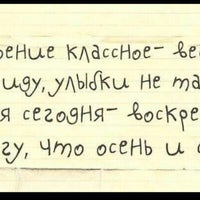 оение классное- ве
иду, улыбки не та
я сегодня- воскре
гу, что осень и